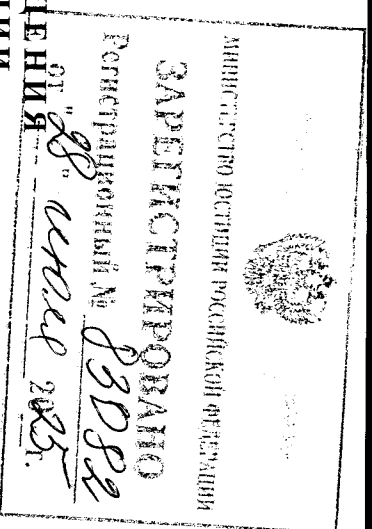 МИНИСТЕРСТВО ЮСТИЦИИ РОССИЙСКОЙ ФЕДЕРАЦИИ
ЗАРЕГИСТРИРОВАНО
Регистрационный № 83082
от "28" июля 2025 г.
ЦЕНИЯ
ЦИИ